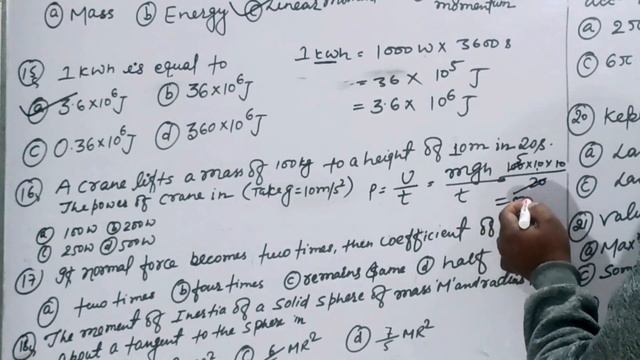 ⓐ Mass ⓑ Energy ⓒ Linear momentum
⑮ 1 kwh is equal to
ⓐ 3.6×10⁶J ⓑ 36×10⁶J
ⓒ 0.36×10⁶J ⓓ 360×10⁶J
1 kwh = 1000 W × 3600 s
= 36 × 10⁵ J
= 3.6 × 10⁶ J
⑯ A crane lifts a mass of 100kg to a height of 10m in 20s.
The power of crane in (Take g=10m/s²) P = U/t = mgh/t = 100×10×10/20
=
ⓐ 100W ⓑ 200W
ⓒ 250W ⓓ 500W
⑰ If normal force becomes two times, then coefficient of
ⓐ two times ⓑ four times ⓒ remains same ⓓ half
⑱ The moment of Inertia of a solid sphere of mass 'M' and radius
about a tangent to the sphere is
ⓒ 6/5 MR² ⓓ 7/5 MR²
ⓐ
ⓒ 6π
⑳ Kepl
ⓐ La
ⓒ La
㉑ Valu
ⓐ Max
ⓒ Som